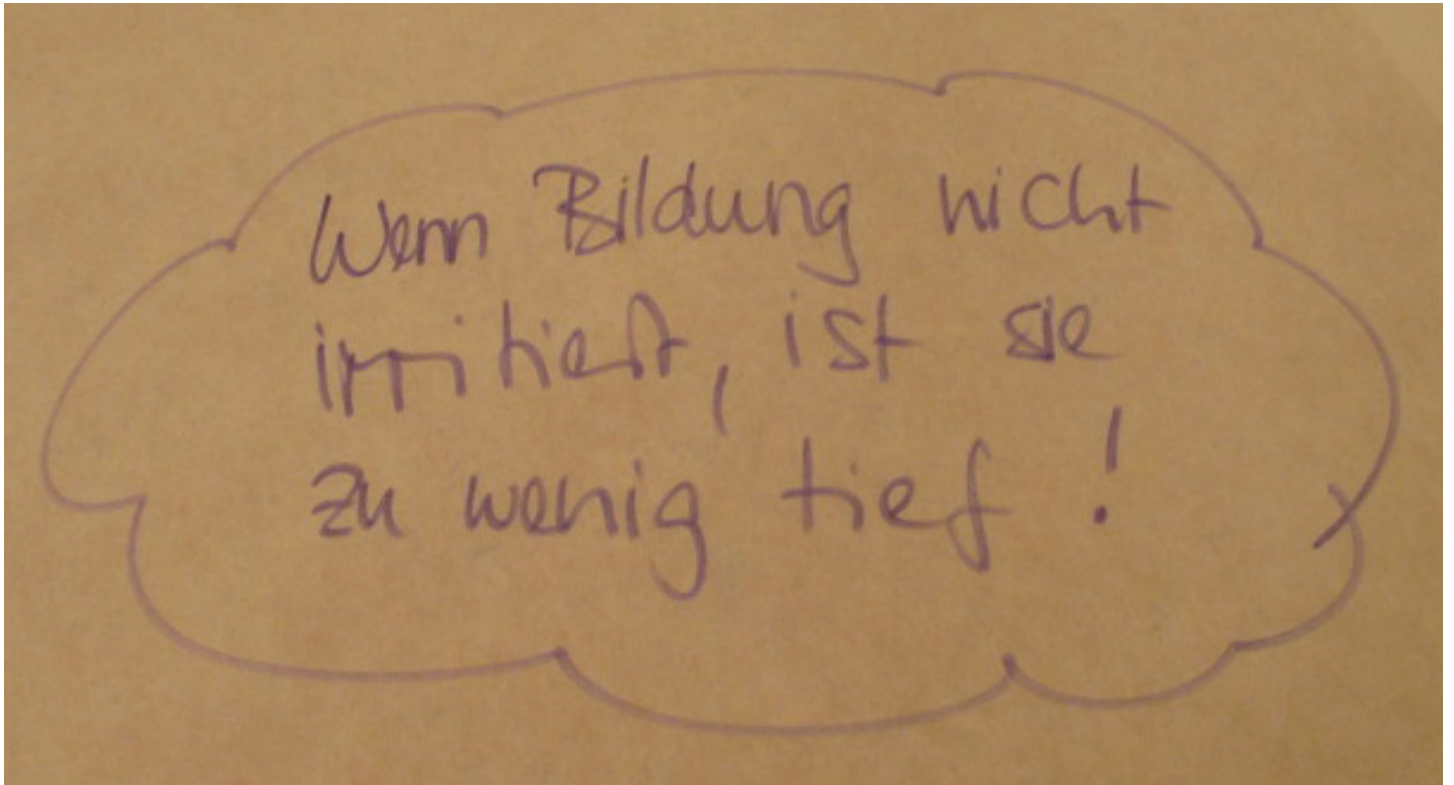 Wenn Bildung nicht
irritiert, ist sie
zu wenig tief !